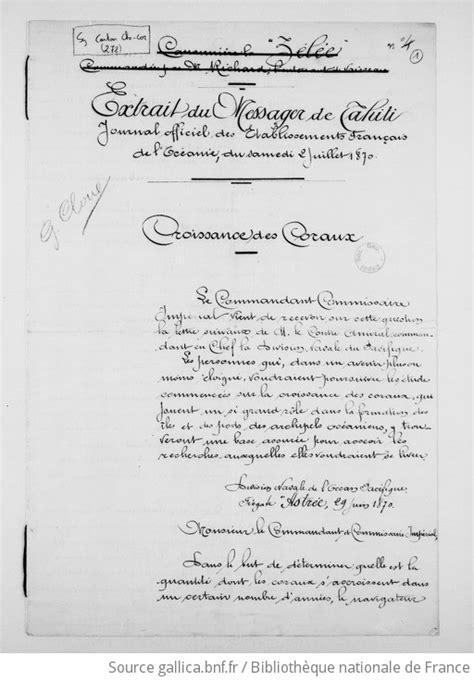 Canonnière la "Zélée"
n° 4
1
Commandée par Mr. Richard, Lieutenant de Vaisseau
Extrait du Messager de Tahiti
Journal officiel des Etablissements Français
de l'Océanie, du samedi 2 juillet 1870.
G Clone
Croissance des Coraux
Le Commandant Commissaire
Impérial vient de recevoir sur cette question
la lettre suivante de M. le Contre Amiral comman
dant en Chef la Division Navale du Pacifique.
Les personnes qui, dans un avenir plus ou
moins éloigné, voudraient poursuivre les études
commencées sur la croissance des coraux, qui
jouent un si grand rôle dans la formation des
îles et des ports des archipels océaniens, y trou
veront une base assurée pour asseoir les
recherches auxquelles elles voudraient se livrer
Division Navale de l'Océan Pacifique
Frégate "Astrée", 29 juin 1870.
Monsieur le Commandant & Commissaire Impérial,
Dans le but de déterminer quelle est la
quantité dont les coraux s'accroissent dans
un certain nombre d'années, le navigateur
Source gallica.bnf.fr / Bibliothèque nationale de France